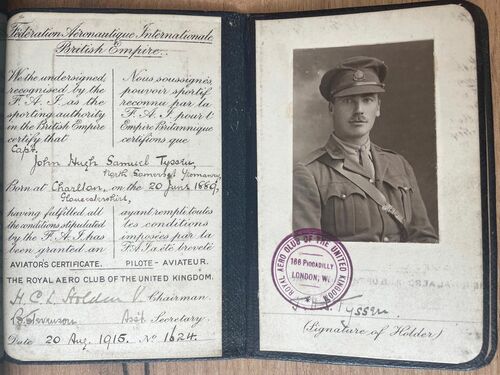 Fédération Aéronautique Internationale
British Empire.
We the undersigned
recognised by the
F.A.I. as the
sporting authority
in the British Empire
certify that
Nous soussignés
pouvoir sportif
reconnu par la
F.A.I. pour l'
Empire Britannique
certifions que
Capt.
John Hugh Samuel Tyssen
North Somerset Yeomanry
Born at Charlton, on the 20 June 1889,
Gloucestershire,
having fulfilled all
the conditions stipulated
by the F.A.I. has
been granted an
ayant rempli toutes
les conditions
imposées par la
F.A.I. a été breveté
AVIATOR'S CERTIFICATE.
PILOTE-AVIATEUR.
THE ROYAL AERO CLUB OF THE UNITED KINGDOM.
H.C.L. Holden V. Chairman.
B. Stevenson Asst Secretary.
Date 20 Aug. 1915. No 1624.
ROYAL AERO CLUB OF THE UNITED KINGDOM
166 PICCADILLY
LONDON, W.
J.H.S. Tyssen
(Signature of Holder)